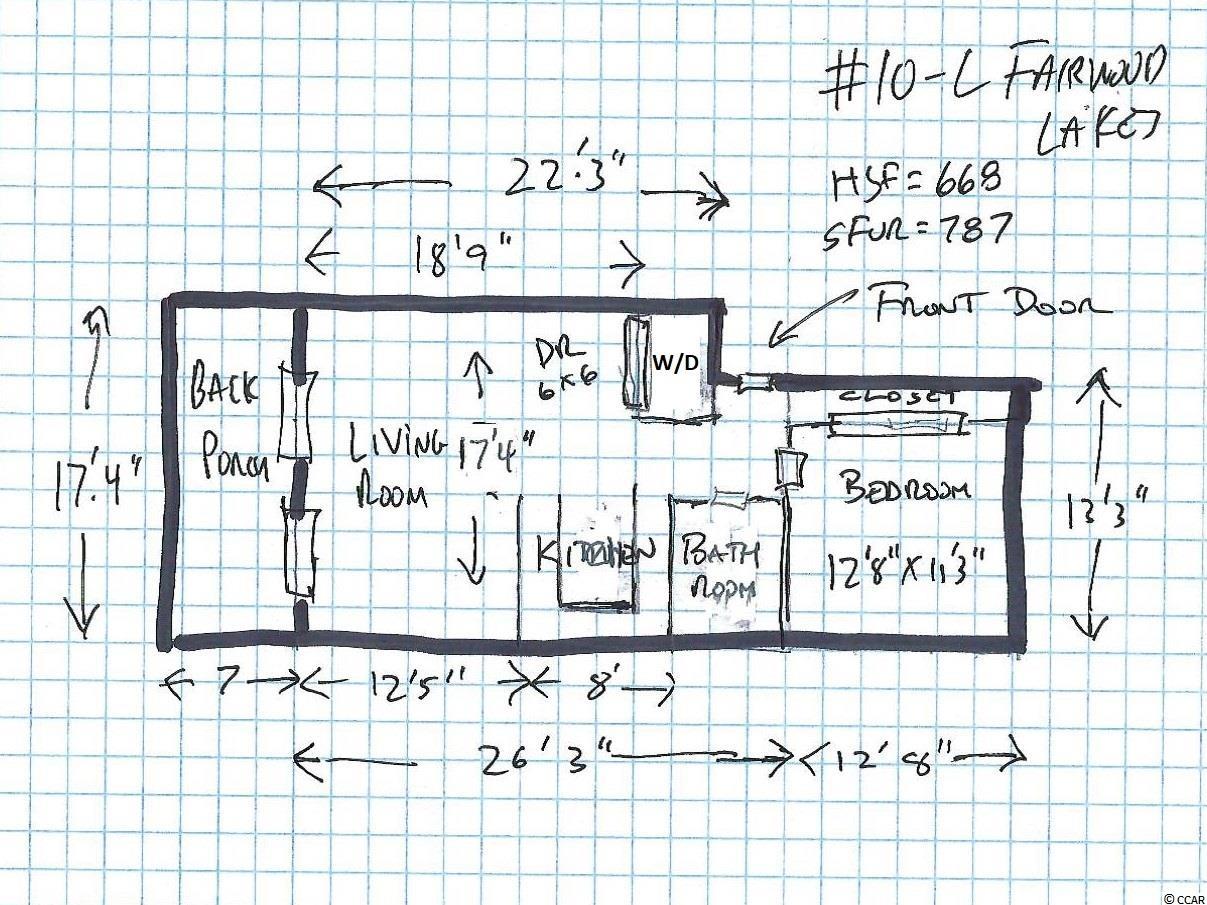 #10-L FAIRWOOD
LAKES
HSF = 668
SFUR = 787
22'.3"
18'9"
FRONT DOOR
DR
6x6
W/D
CLOSET
BACK
PORCH
LIVING
ROOM
17'4"
17'.4"
KITCHEN
BATH
ROOM
BEDROOM
12'8" X 11'3"
13'3"
7
12'5"
8'
26'3"
12'8"
© CCAR